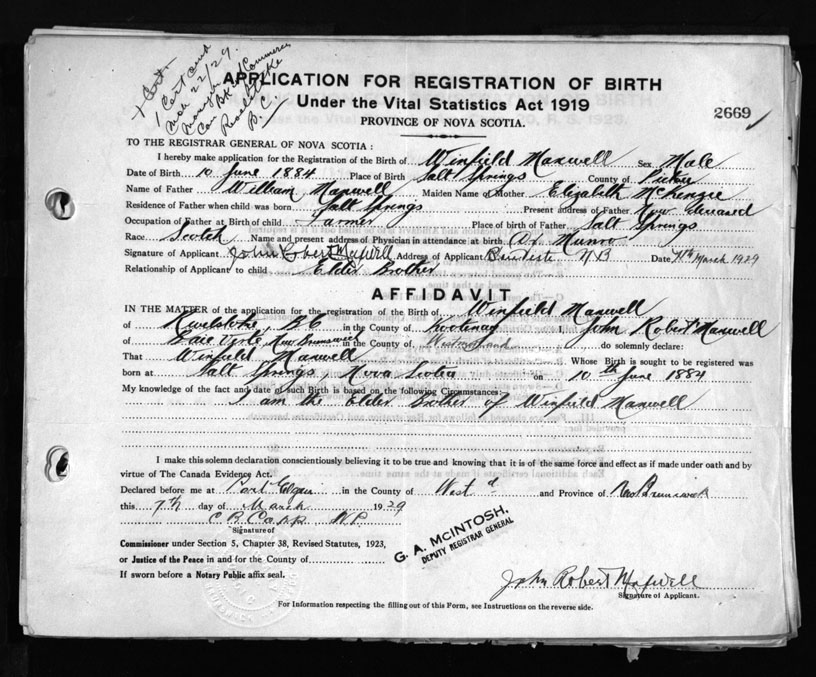 + Cert
1 Cert and
Mch 22/29.
Manager
Can Bk of Commerce
Revelstoke
B.C.
APPLICATION FOR REGISTRATION OF BIRTH
Under the Vital Statistics Act 1919
PROVINCE OF NOVA SCOTIA.
2669
TO THE REGISTRAR GENERAL OF NOVA SCOTIA:
I hereby make application for the Registration of the Birth of Winfield Maxwell Sex Male
Date of Birth 10 June 1884 Place of Birth Salt Springs County of Pictou
Name of Father William Maxwell Maiden Name of Mother Elizabeth McKenzie
Residence of Father when child was born Salt Springs Present address of Father Now deceased
Occupation of Father at Birth of child Farmer Place of birth of Father Salt Springs
Race Scotch Name and present address of Physician in attendance at birth Dr. Munro
Signature of Applicant John Robert Maxwell Address of Applicant NB Date 7th March 1929
Relationship of Applicant to child Elder Brother
AFFIDAVIT
IN THE MATTER of the application for the registration of the Birth of Winfield Maxwell
of Revelstoke, BC in the County of Kootenay I, John Robert Maxwell
of Baie Verte New Brunswick in the County of Westmorland do solemnly declare:
That Winfield Maxwell Whose Birth is sought to be registered was
born at Salt Springs, Nova Scotia on 10th June 1884
My knowledge of the fact and date of such Birth is based on the following Circumstances:
I am the Elder Brother of Winfield Maxwell
I make this solemn declaration conscientiously believing it to be true and knowing that it is of the same force and effect as if made under oath and by
virtue of The Canada Evidence Act.
Declared before me at Port Elgin in the County of West'd and Province of New Brunswick
this 7th day of March 1929
C B Copp N.P.
Signature of
Commissioner under Section 5, Chapter 38, Revised Statutes, 1923,
or Justice of the Peace in and for the County of
If sworn before a Notary Public affix seal.
G. A. McINTOSH,
DEPUTY REGISTRAR GENERAL
John Robert Maxwell
Signature of Applicant.
For Information respecting the filling out of this Form, see Instructions on the reverse side.